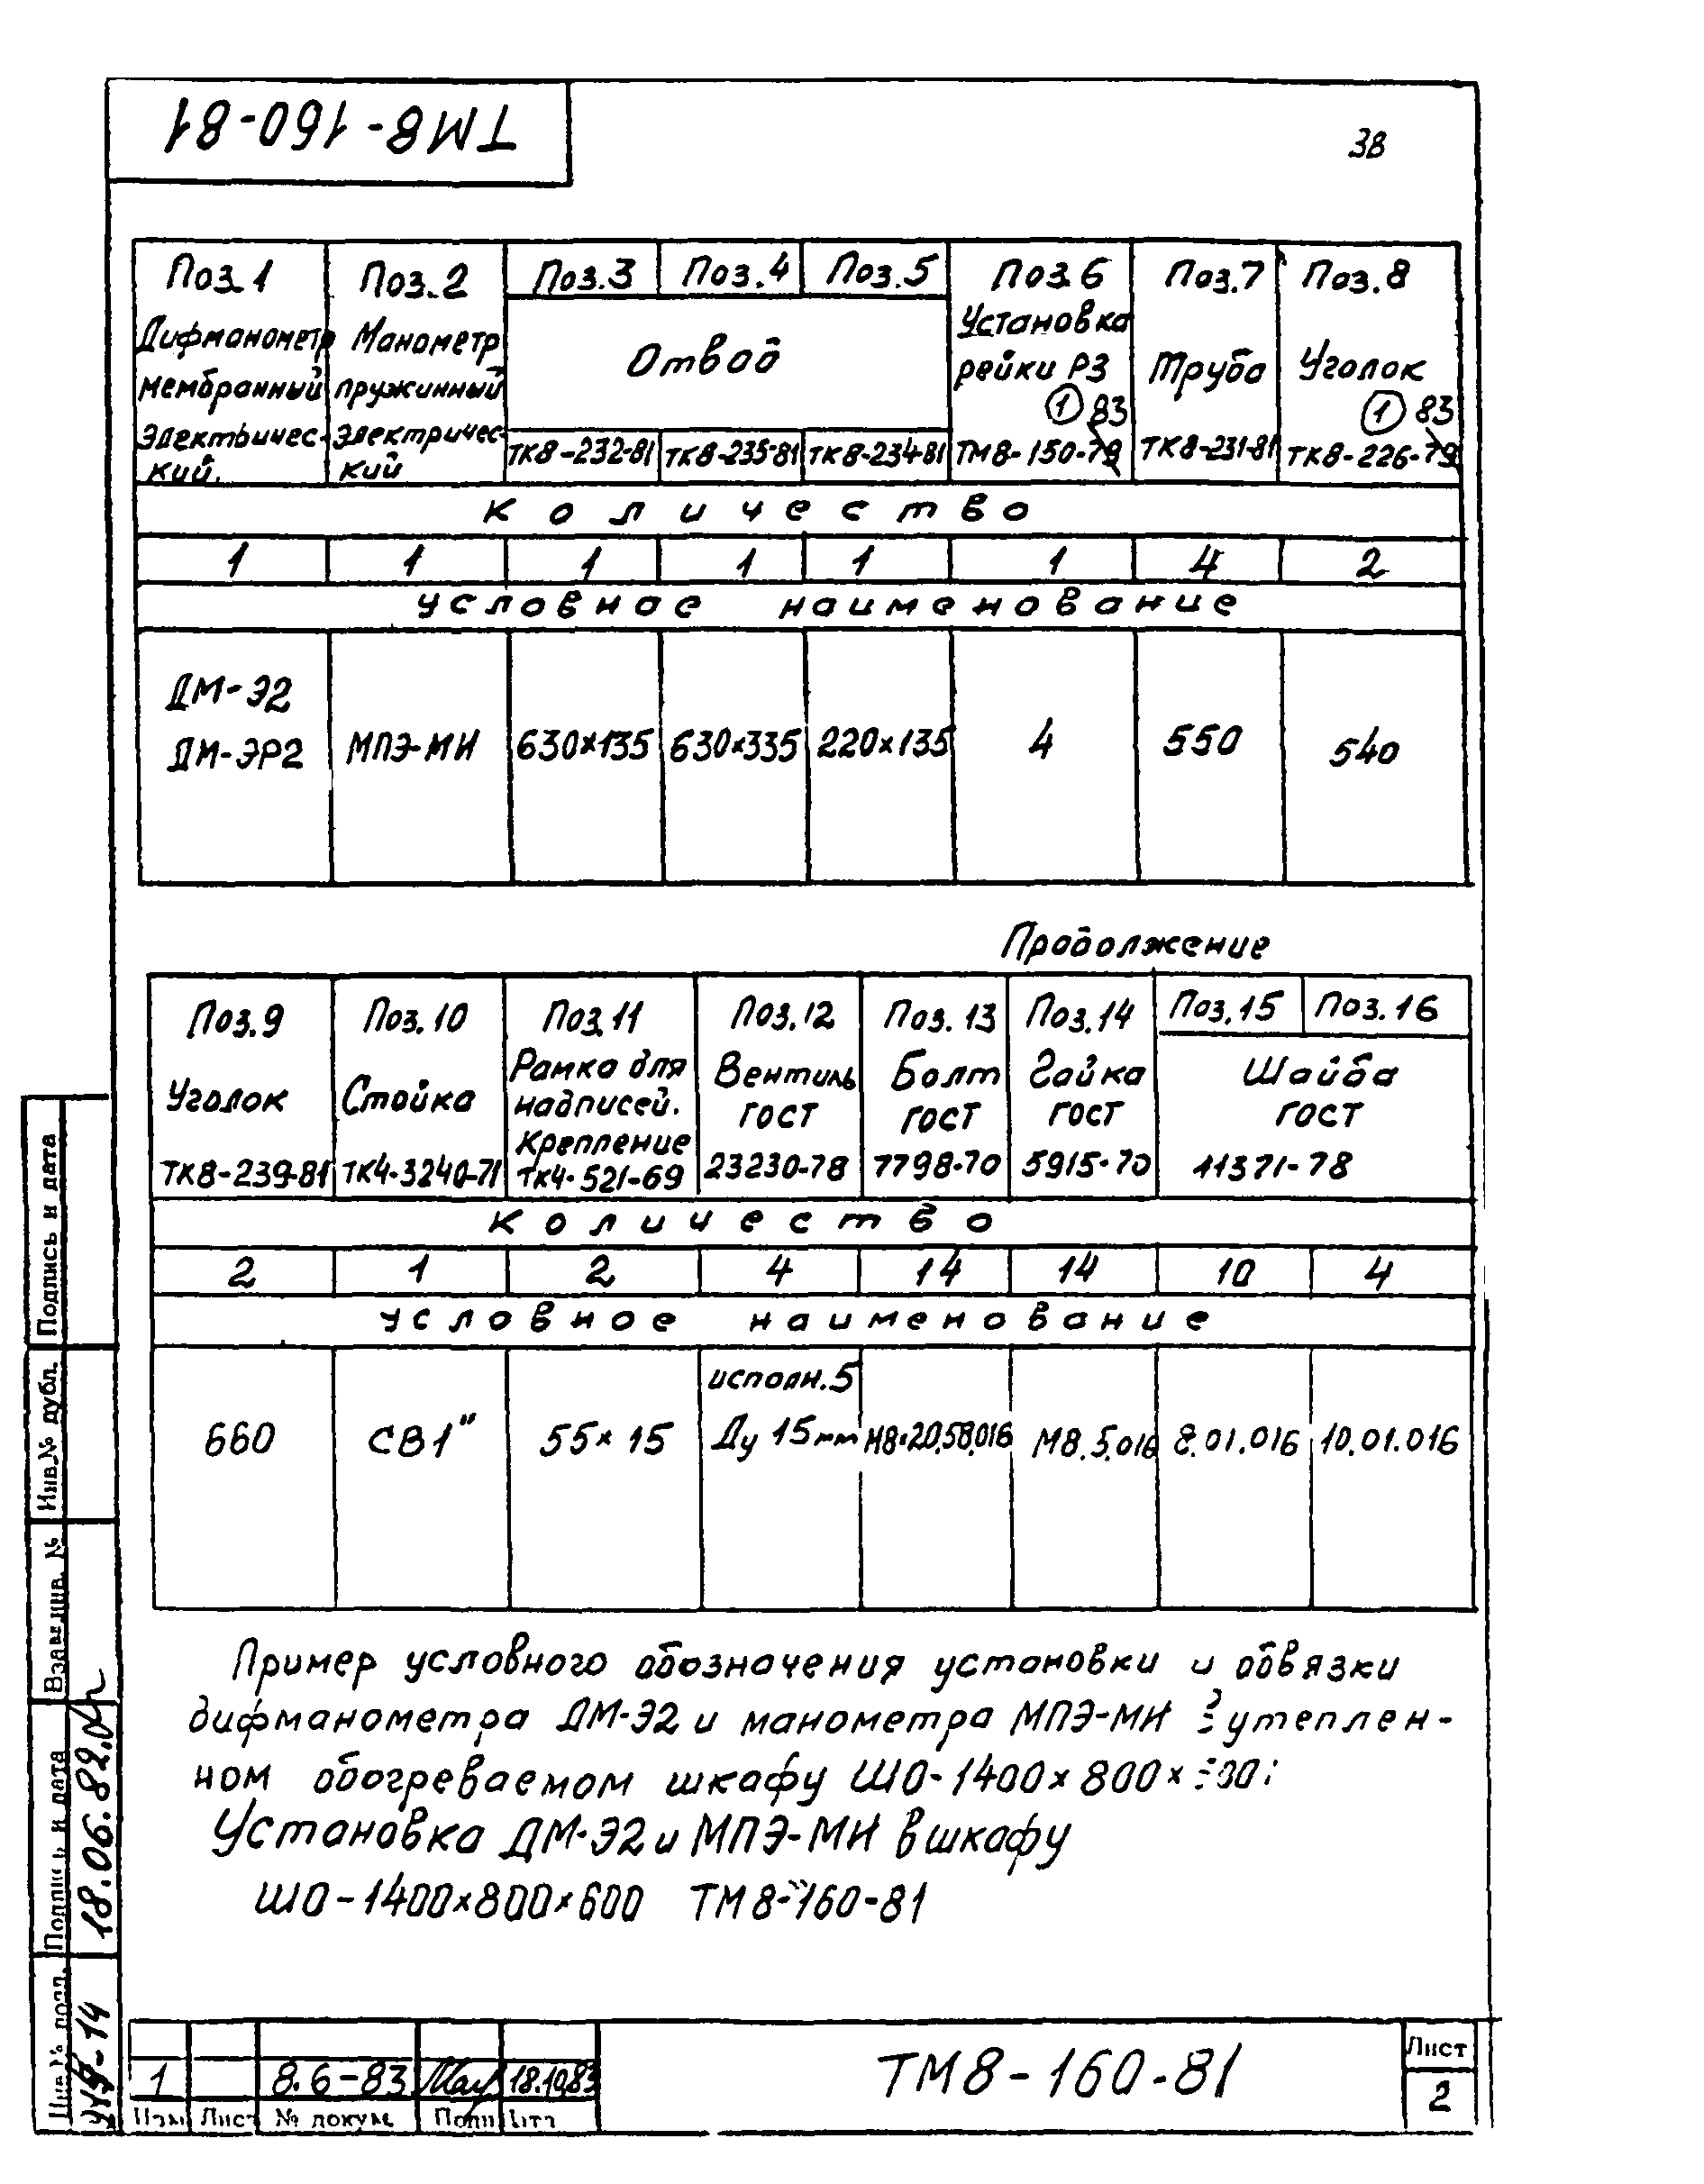 ТМ8-160-81
38
Поз.1 Поз.2 Поз.3 Поз.4 Поз.5 Поз.6 Поз.7 Поз.8
Дифманометр мембранный электричес-кий.
Манометр пружинный электричес-кий
Отвод
Установка рейки РЗ
Труба
Уголок
1 83
1 83
ТК8-232-81 ТК8-235-81 ТК8-234-81 ТМ8-150-79 ТК8-231-81 ТК8-226-79
Количество
1 1 1 1 1 1 4 2
Условное наименование
ДМ-Э2
ДМ-ЭР2 МПЭ-МИ 630×135 630×335 220×135 4 550 540
Продолжение
Поз.9 Поз.10 Поз.11 Поз.12 Поз.13 Поз.14 Поз.15 Поз.16
Уголок
Стойка
Рамка для надписей. Крепление
Вентиль ГОСТ
Болт ГОСТ
Гайка ГОСТ
Шайба ГОСТ
ТК8-239-81 ТК4-3240-71 ТК4-521-69 23230-78 7798-70 5915-70 11371-78
Количество
2 1 2 4 14 14 10 4
Условное наименование
исполн.5
660 СВ1" 55×15 Ду 15мм М8×20.58.016 М8.5.016 8.01.016 10.01.016
Пример условного обозначения установки и обвязки
дифманометра ДМ-Э2 и манометра МПЭ-МИ утеплен-
ном обогреваемом шкафу ШО-1400×800×
Установка ДМ-Э2 и МПЭ-МИ в шкафу
ШО-1400×800×600 ТМ8-160-81
Подпись и дата
Инв.№ дубл.
Взам.инв. №
Подпись и дата
18.06.82
Инв.№ подл.
1 8.6-83 18.10.83
Изм Лист № докум. Подп. Дата
ТМ8-160-81
Лист
2